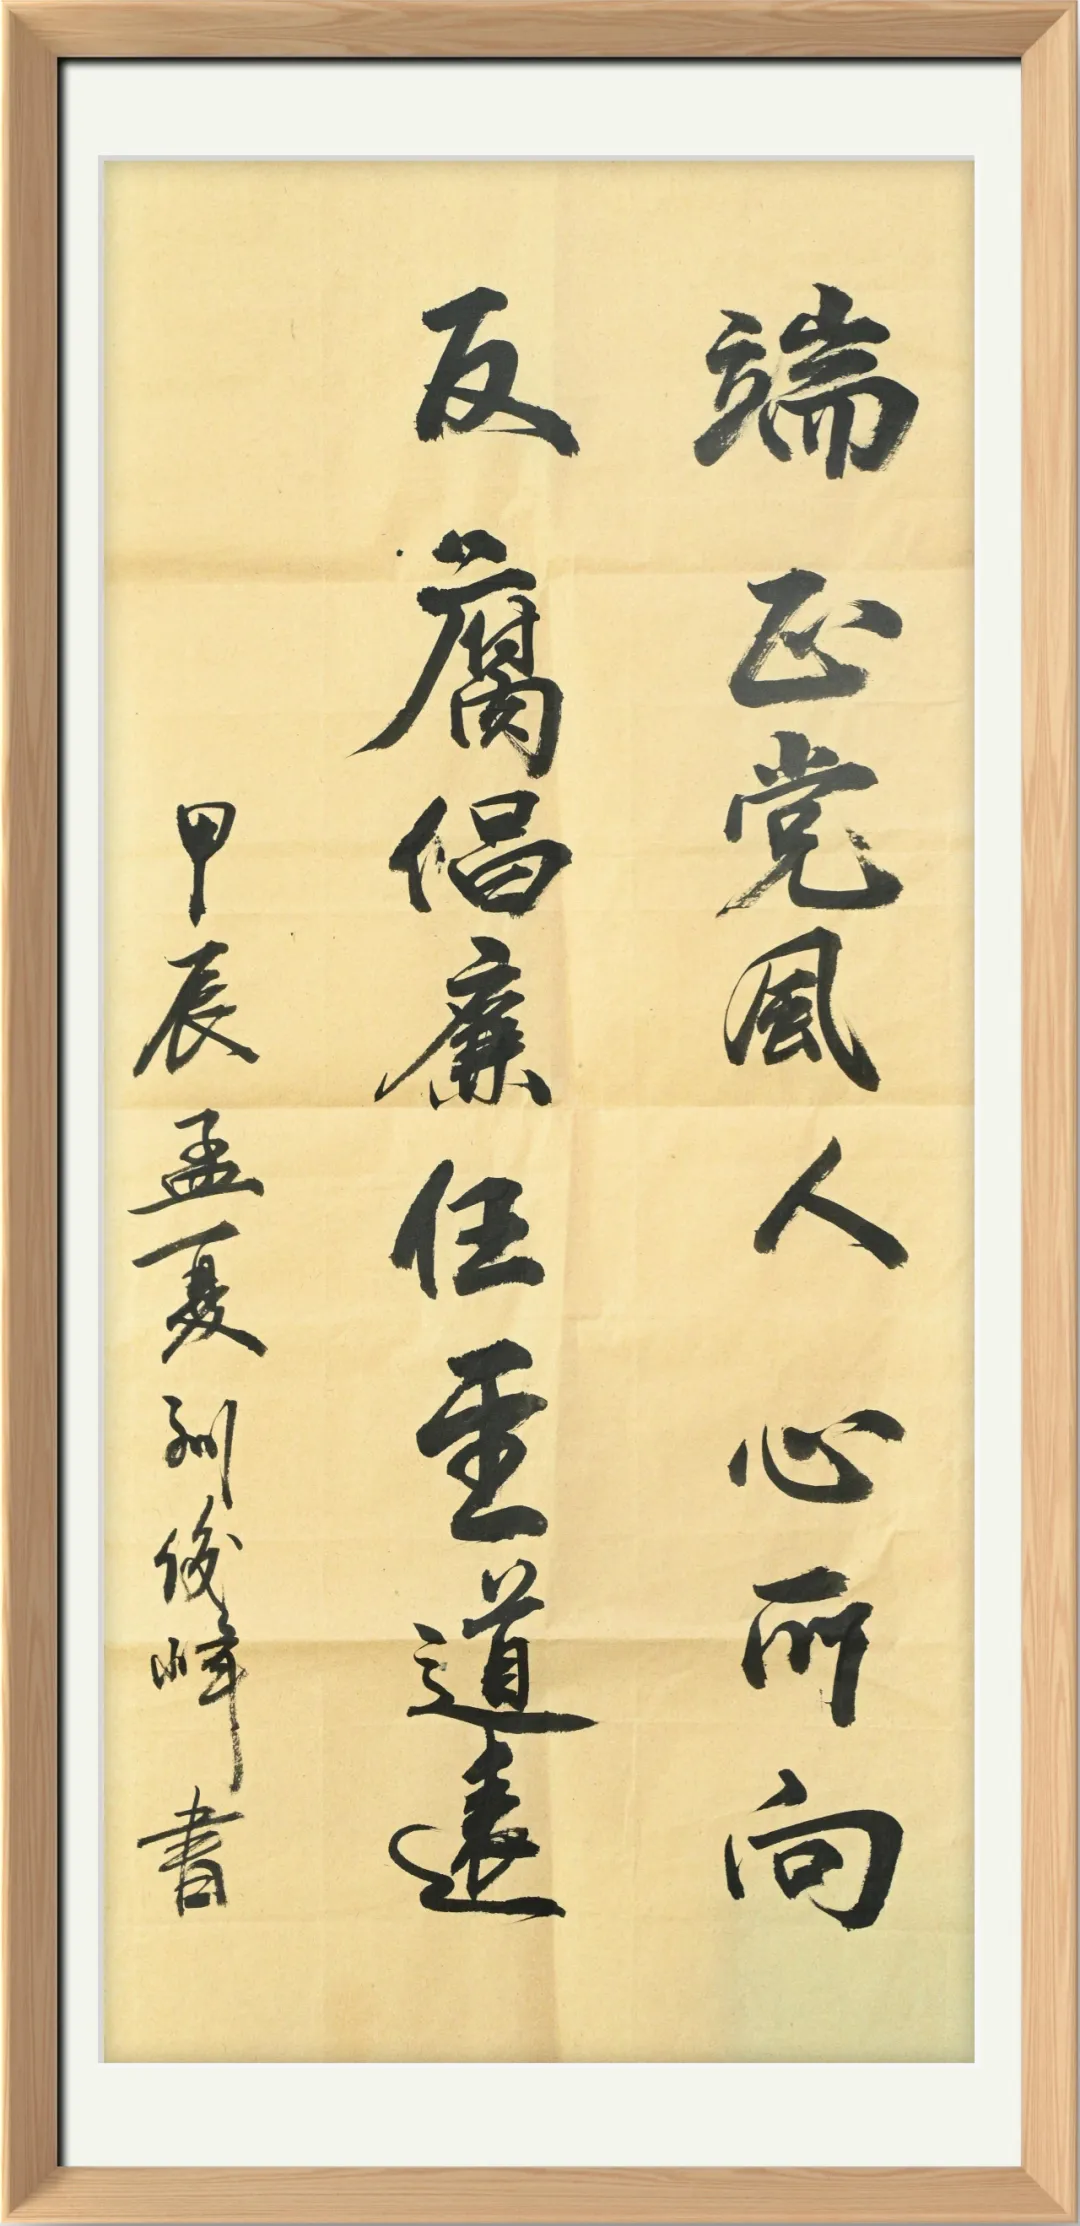 端正党風人心所向
反腐倡廉任重道遠
甲辰孟夏刘俊峰書